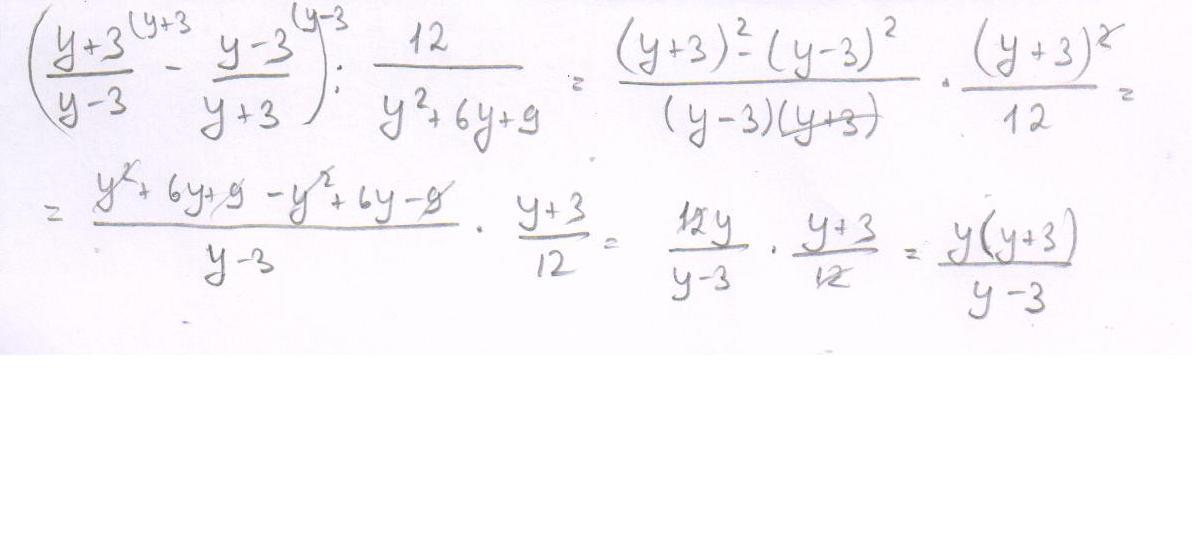 ((y+3)/(y-3) (y+3 - (y-3)/(y+3) (y-3) : 12/(y²+6y+9) = ((y+3)²-(y-3)²)/((y-3)(y+3)) · (y+3)²/12 =
= (y²+6y+9-y²+6y-9)/(y-3) · (y+3)/12 = 12y/(y-3) · (y+3)/12 = y(y+3)/(y-3)